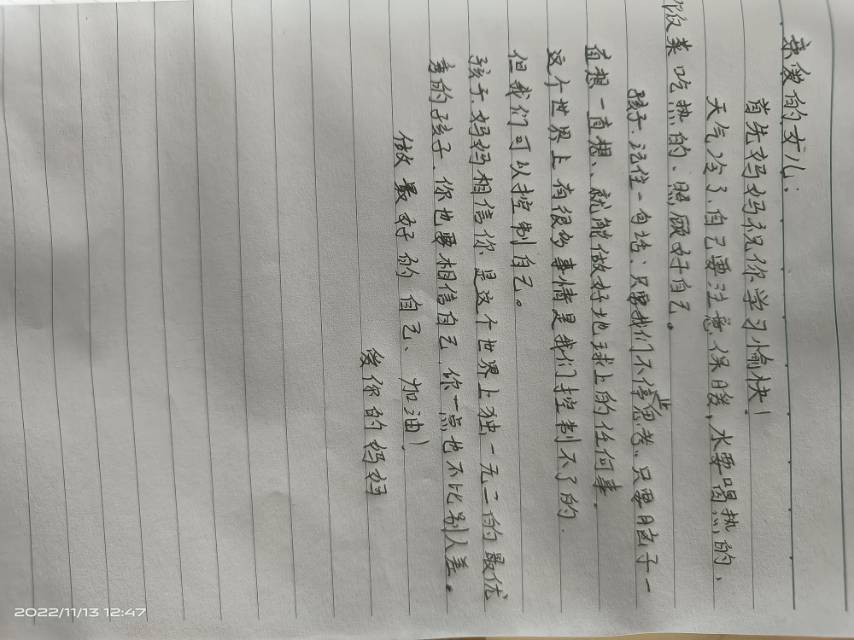 亲爱的女儿：
首先妈妈祝你学习愉快！
天气冷了、自己要注意、保暖，水要喝热的、
饭菜吃热的、照顾好自己。
孩子、记住一句话：只要我们不停止思考、只要脑子一
直想一直想、就能做好地球上的任何事.
这个世界上有很多事情是我们控制不了的.
但我们可以控制自己。
孩子、妈妈相信你是这个世界上独一无二的最优
秀的孩子、你也要相信自己 你一点也不比别人差。
做最好的自己、加油！
你的妈妈
2022/11/13 12:47